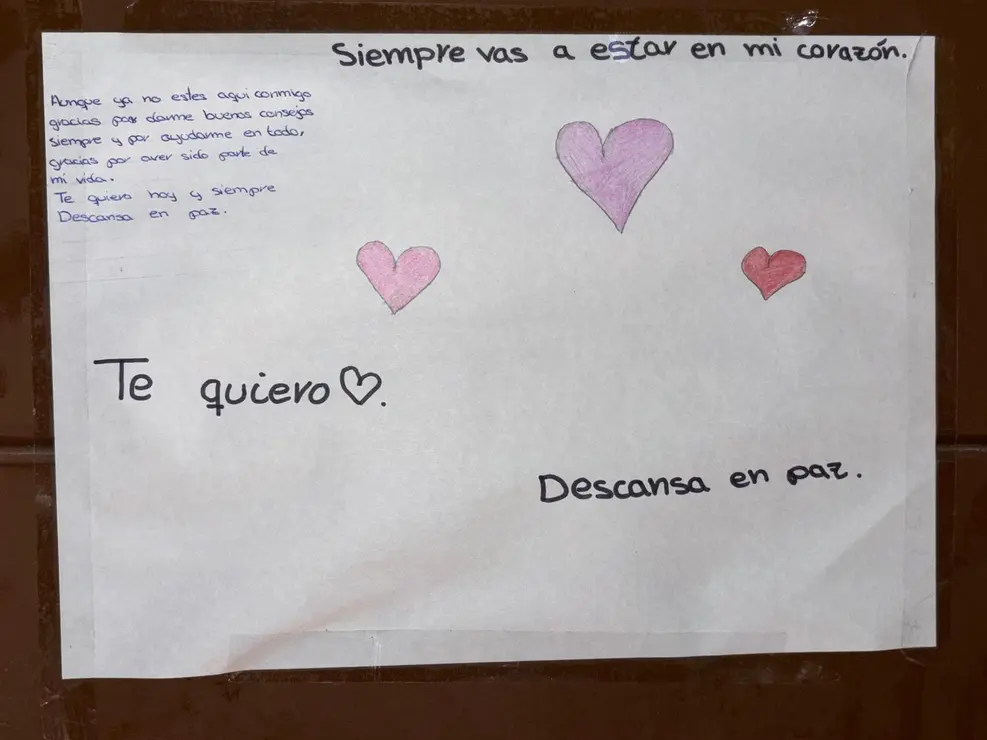 Siempre vas a estar en mi corazón.
Aunque ya no estes aqui conmigo
gracias por darme buenos consejos
siempre y por ayudarme en todo,
gracias por aver sido parte de
mi vida.
Te quiero hoy y siempre
Descansa en paz.
Te quiero ♡.
Descansa en paz.